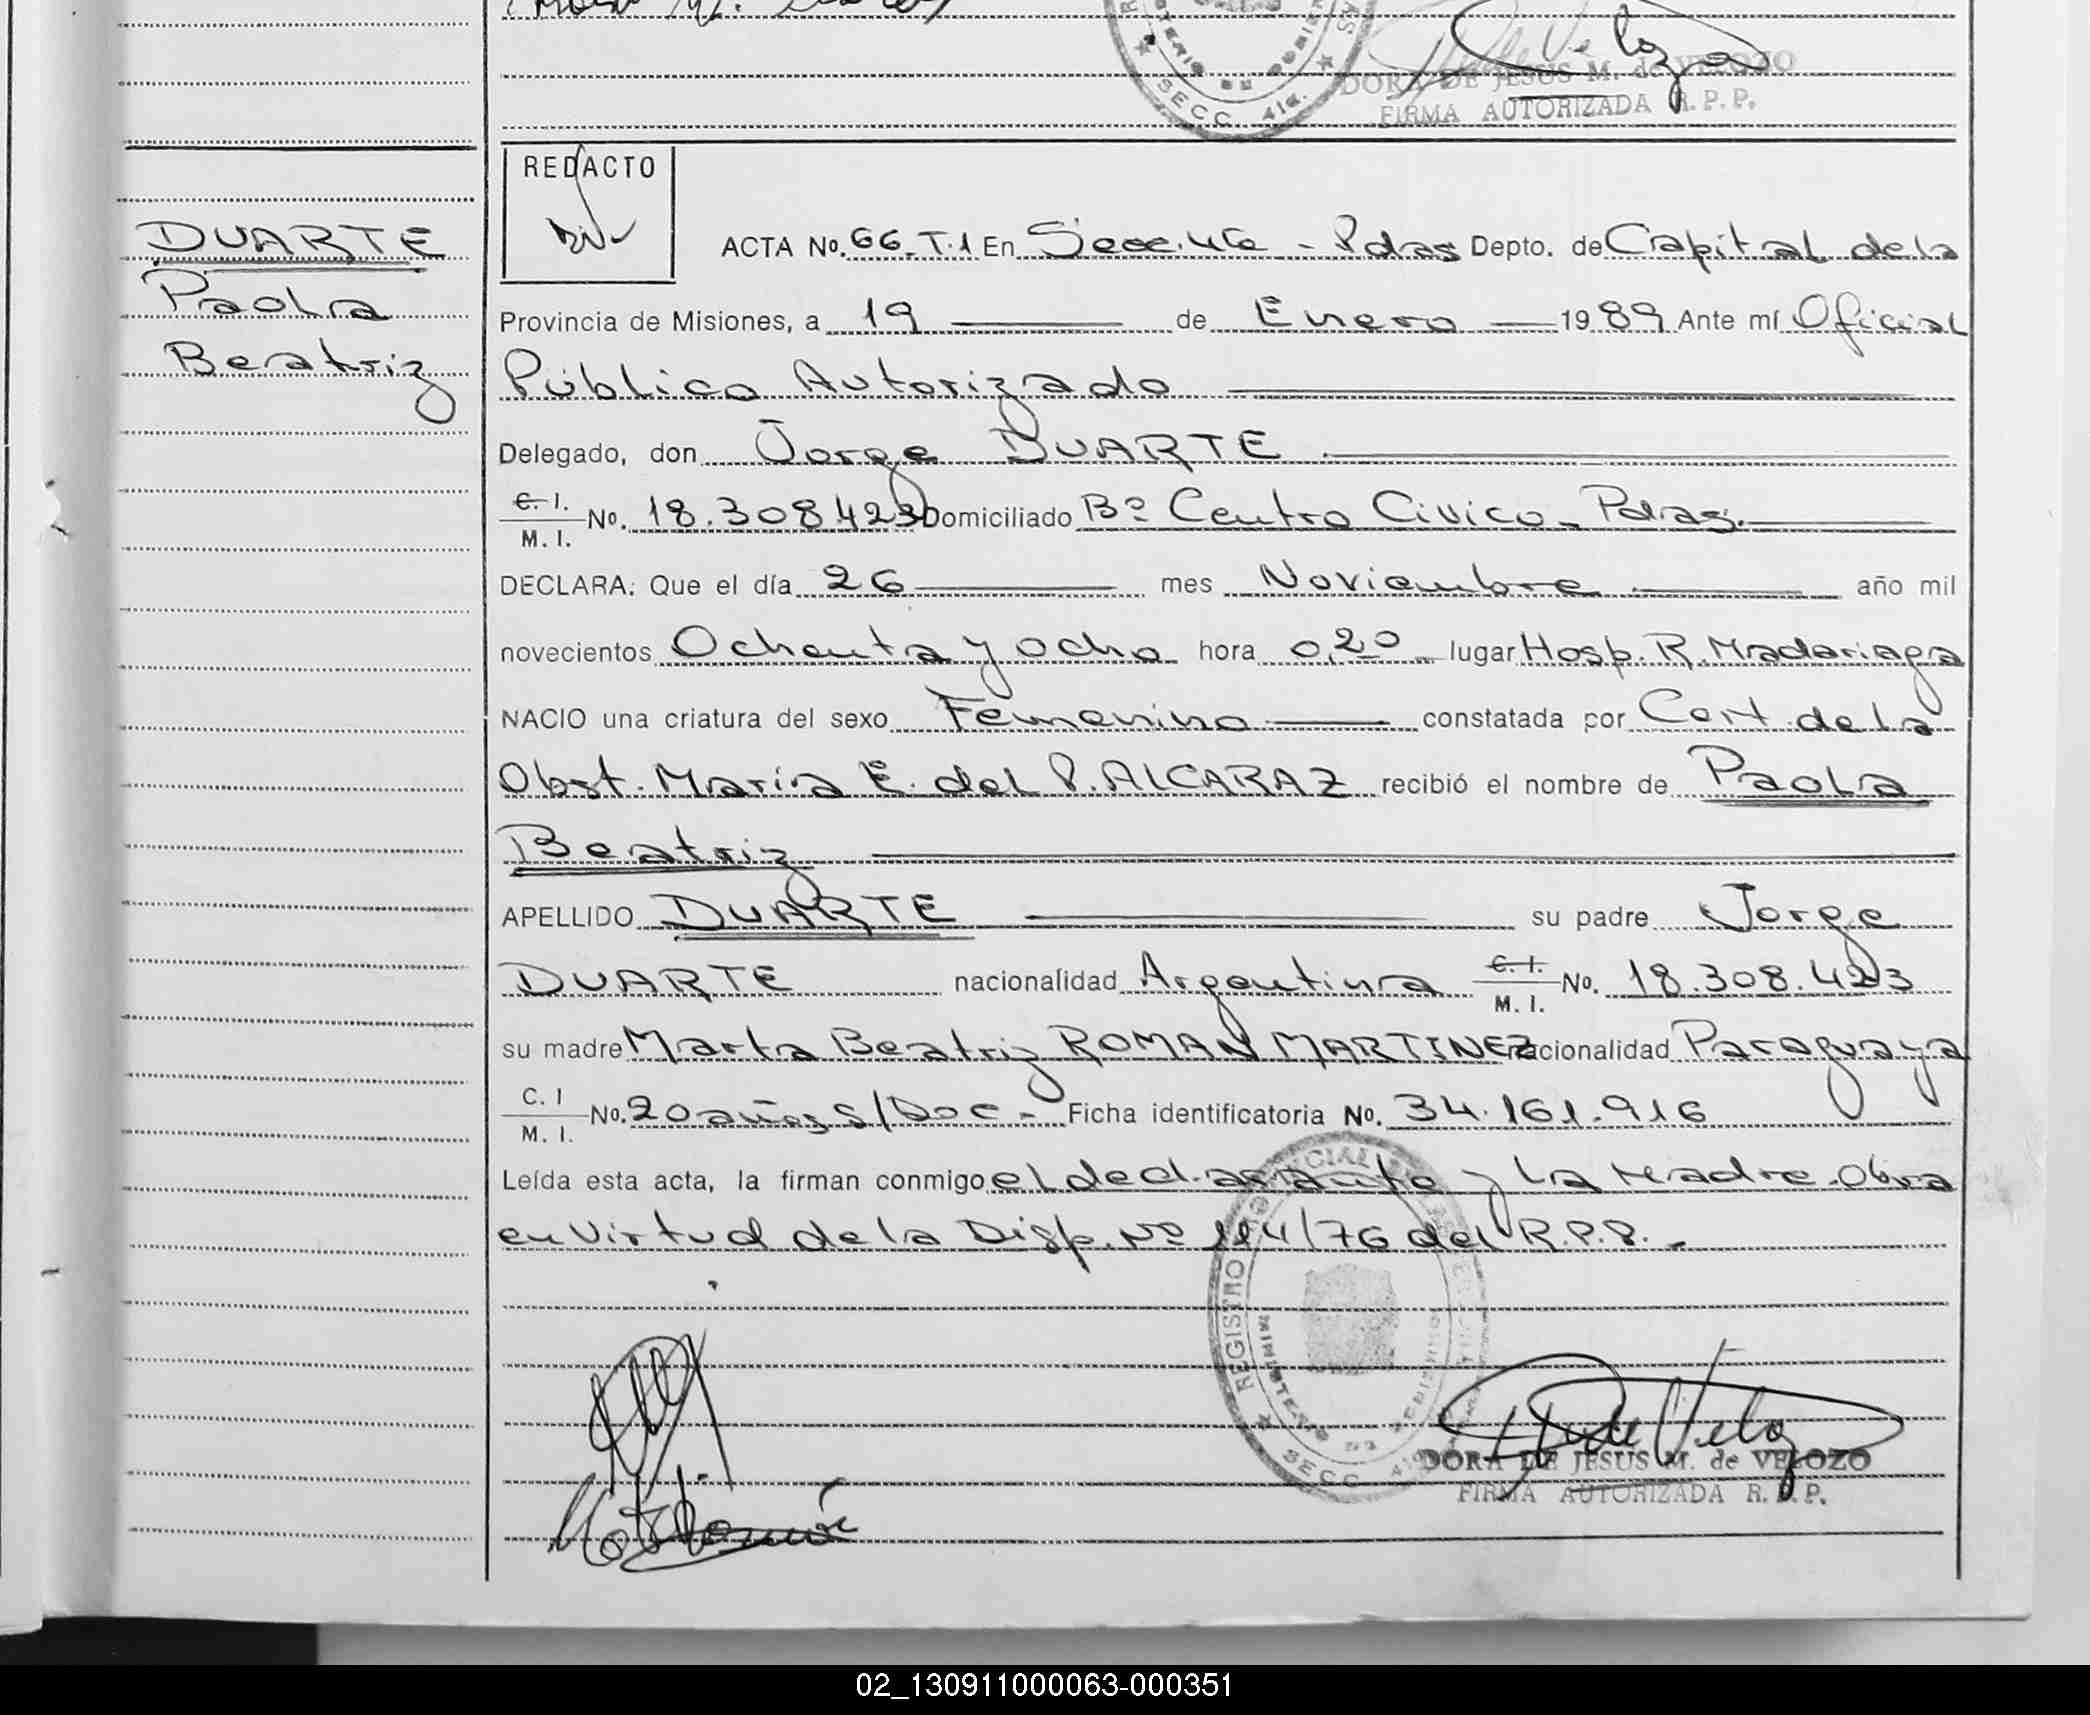 DORA DE JESUS M. de VELOZO
FIRMA AUTORIZADA R.P.P.
SECC.
REDACTO
DUARTE
Paola
Beatriz
ACTA No. 66-T.1 En Secc. 4ta - Pdas Depto. de Capital de la
Provincia de Misiones, a 19 de Enero 1989 Ante mí Oficial
Público Autorizado
Delegado, don Jorge DUARTE
C. I. / M. I. No. 18.308.423 Domiciliado Bº Centro Civico - Pdas.
DECLARA: Que el día 26 mes Noviembre año mil
novecientos Ochenta y ocho hora 0,20 lugar Hosp. R. Madariaga
NACIO una criatura del sexo Femenino constatada por Cert. de la
Obst. María E. del P. ALCARAZ recibió el nombre de Paola
Beatriz
APELLIDO DUARTE su padre Jorge
DUARTE nacionalidad Argentina C. I. / M. I. No. 18.308.423
su madre Marta Beatriz ROMAN MARTINEZ nacionalidad Paraguaya
C. I / M. I. No. 20 años S/Doc - Ficha identificatoria No. 34.161.916
Leída esta acta, la firman conmigo el declarante y la Madre. Obra
en Virtud de la Disp. Nº 114/76 del R.P.P. -
REGISTRO
SECC.
DORA DE JESUS M. de VELOZO
FIRMA AUTORIZADA R.P.P.
02_130911000063-000351